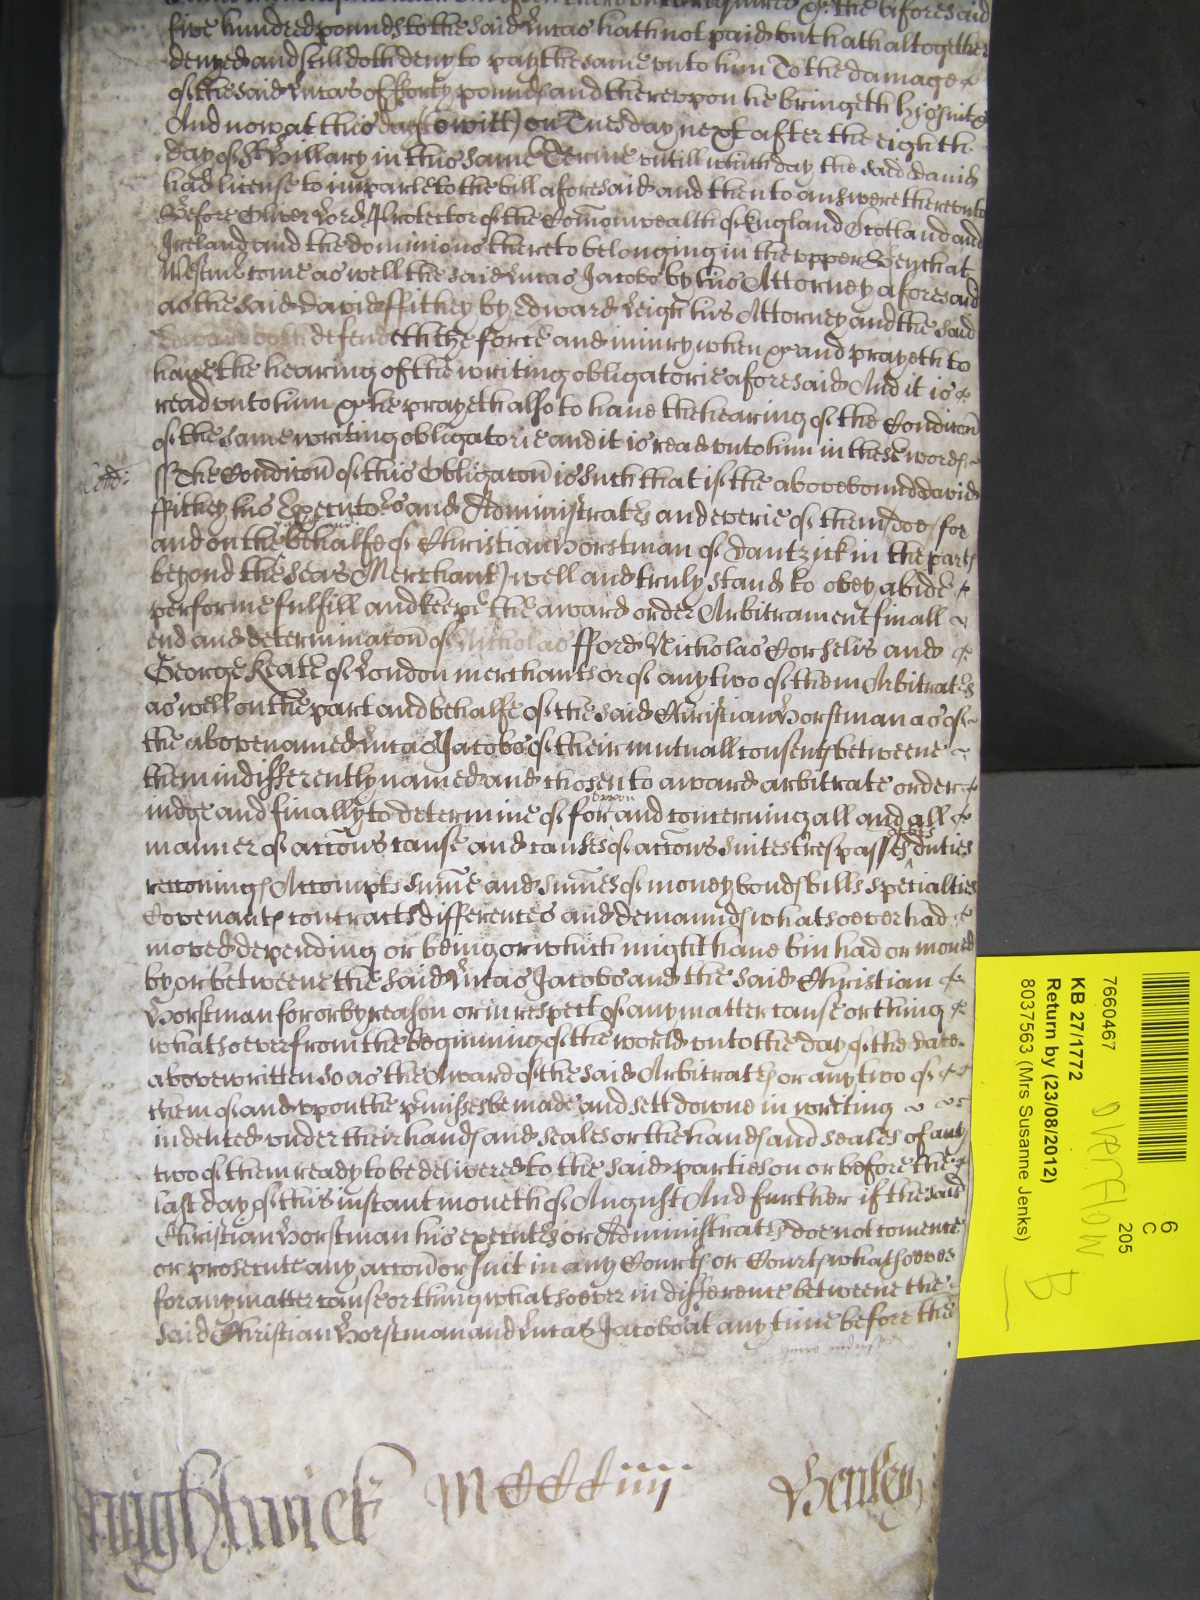 the aforesaid
five hundred pounds to the said Lucas hath not paid but hath altogether
denyed and still doth deny to pay the same unto him To the damage
of the said Lucas of fforty pounds and thereupon he bringeth his suit &c
And now at this day (to witt) on Tuesday next after the eighth
day of St Hillary in this same Terme untill which day the said david
had license to imparle to the bill aforesaid and then to answere thereunto
Before Oliver Lord Protector of the Comonwealth of England Scotland and
Ireland and the dominions thereto belonging in the upper Bench at
Westmr come as well the said Lucas Jacobs by his Attorney aforesaid
as the said david ffithey by Edward Leigh his Attorney and the said
defendeth the force and iniury when &c and prayeth to
haue the hearing of the writing obligatorie aforesaid And it is
read unto him &c he prayeth also to haue the hearing of the Condicon
of the same writing obligatorie and it is read unto him in these words
Cond:
ss The Condicon of this Obligacon is such that if the above bound david
ffithey his Executors and Administrators and everie of them doe for
and on the behalfe of Christian Horstman of Dantzick in the parts
beyond the Seas Merchant) well and truly stand to obey abide
performe fulfill and keepe the award order Arbitrament finall
end and determinacon of Nicholas fford Nicholas Corselis and
George Keate of London merchants or of any two of them Arbitrators
as well on the part and behalfe of the said Christian Horstman as of
the abovenamed Lucas Jacobs of their mutuall consents betweene
them indifferently named and chosen to award arbitrate order
upon
iudge and finally to determine of for and concerning all and all
manner of accons cause and causes of accons suites trespasses duties
reconings Accompts summe and summes of money bonds bills specialties
Covenants contracts differences and demaunds whatsoever had
moved depending or being or which might haue bin had or moved
by or betweene the said Lucas Jacobs and the said Christian
Horstman for or by reason or in respect of any matter cause or thing
whatsoever from the beginning of the world unto the day of the date
abovewritten so as the Award of the said Arbitrators or any two of
them of and upon the pmisses be made and sett downe in writing
indented under their hands and seales or the hands and seales of any
two of them ready to be delivered to the said parties on or before the
last day of this instant moneth of August And further if the said
Christian Horstman his executors or Administrators doe not comence
or prosecute any accon or suit in any Courts or Court whatsoever
for any matter cause or thing whatsoever in difference betweene the
said Christian Horstman and Lucas Jacobs at any time before the
Mccccciiii
Henley
6
C
205
7660467
KB 27/1772
Return by (23/08/2012)
8037563 (Mrs Susanne Jenks)
OVERFLOW
B